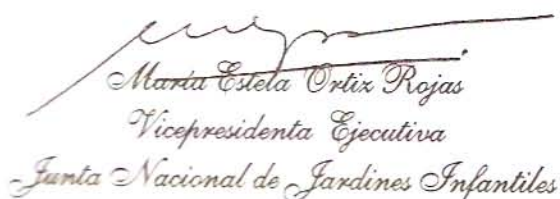 María Estela Ortiz Rojas
Vicepresidenta Ejecutiva
Junta Nacional de Jardines Infantiles